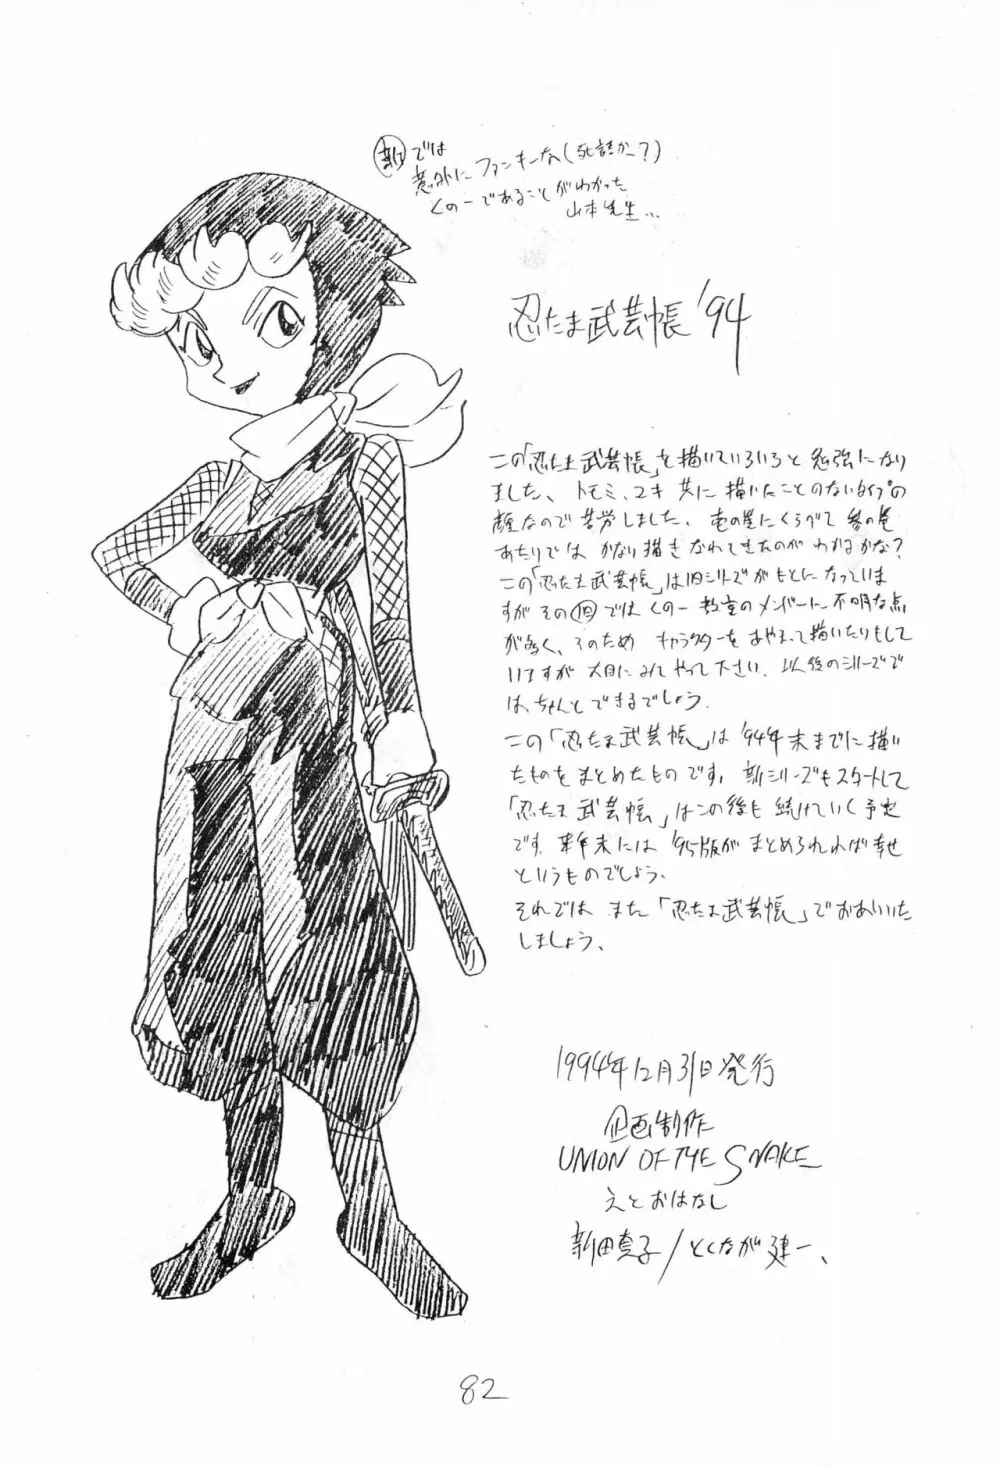 新では
意外にファンキーな(死語かー?)
くのーであることがわかった
山本先生…
忍たま武芸帳'94
この「忍たま武芸帳」を描いていろいろと勉強になり
ました、トモミ、ユキ共に描いたことのないタイプの
顔なので苦労しました、壱の巻にくらべて参の巻
あたりでは かなり描きなれてきたのがわかるかな?
この「忍たま武芸帳」は旧シリーズがもとになっていま
すがその旧では くのー教室のメンバーに不明な点
が多く、そのため キャラクターをまちがって描いたりもして
いますが大目にみてやって下さい、以後のシリーズで
は、ちゃんとできるでしょう、
この「忍たま武芸帳」は'94年末までに描い
たものをまとめたものです、新シリーズもスタートして
「忍たま武芸帳」はこの後も続けていく予定
です、年末には'95版がまとめられれば幸せ
というものでしょう、
それでは また「忍たま武芸帳」でおあいいた
しましょう、
1994年12月31日発行
企画制作
UNION OF THE SNAKE
えとおはなし
新田真子/とくなが建一、
82